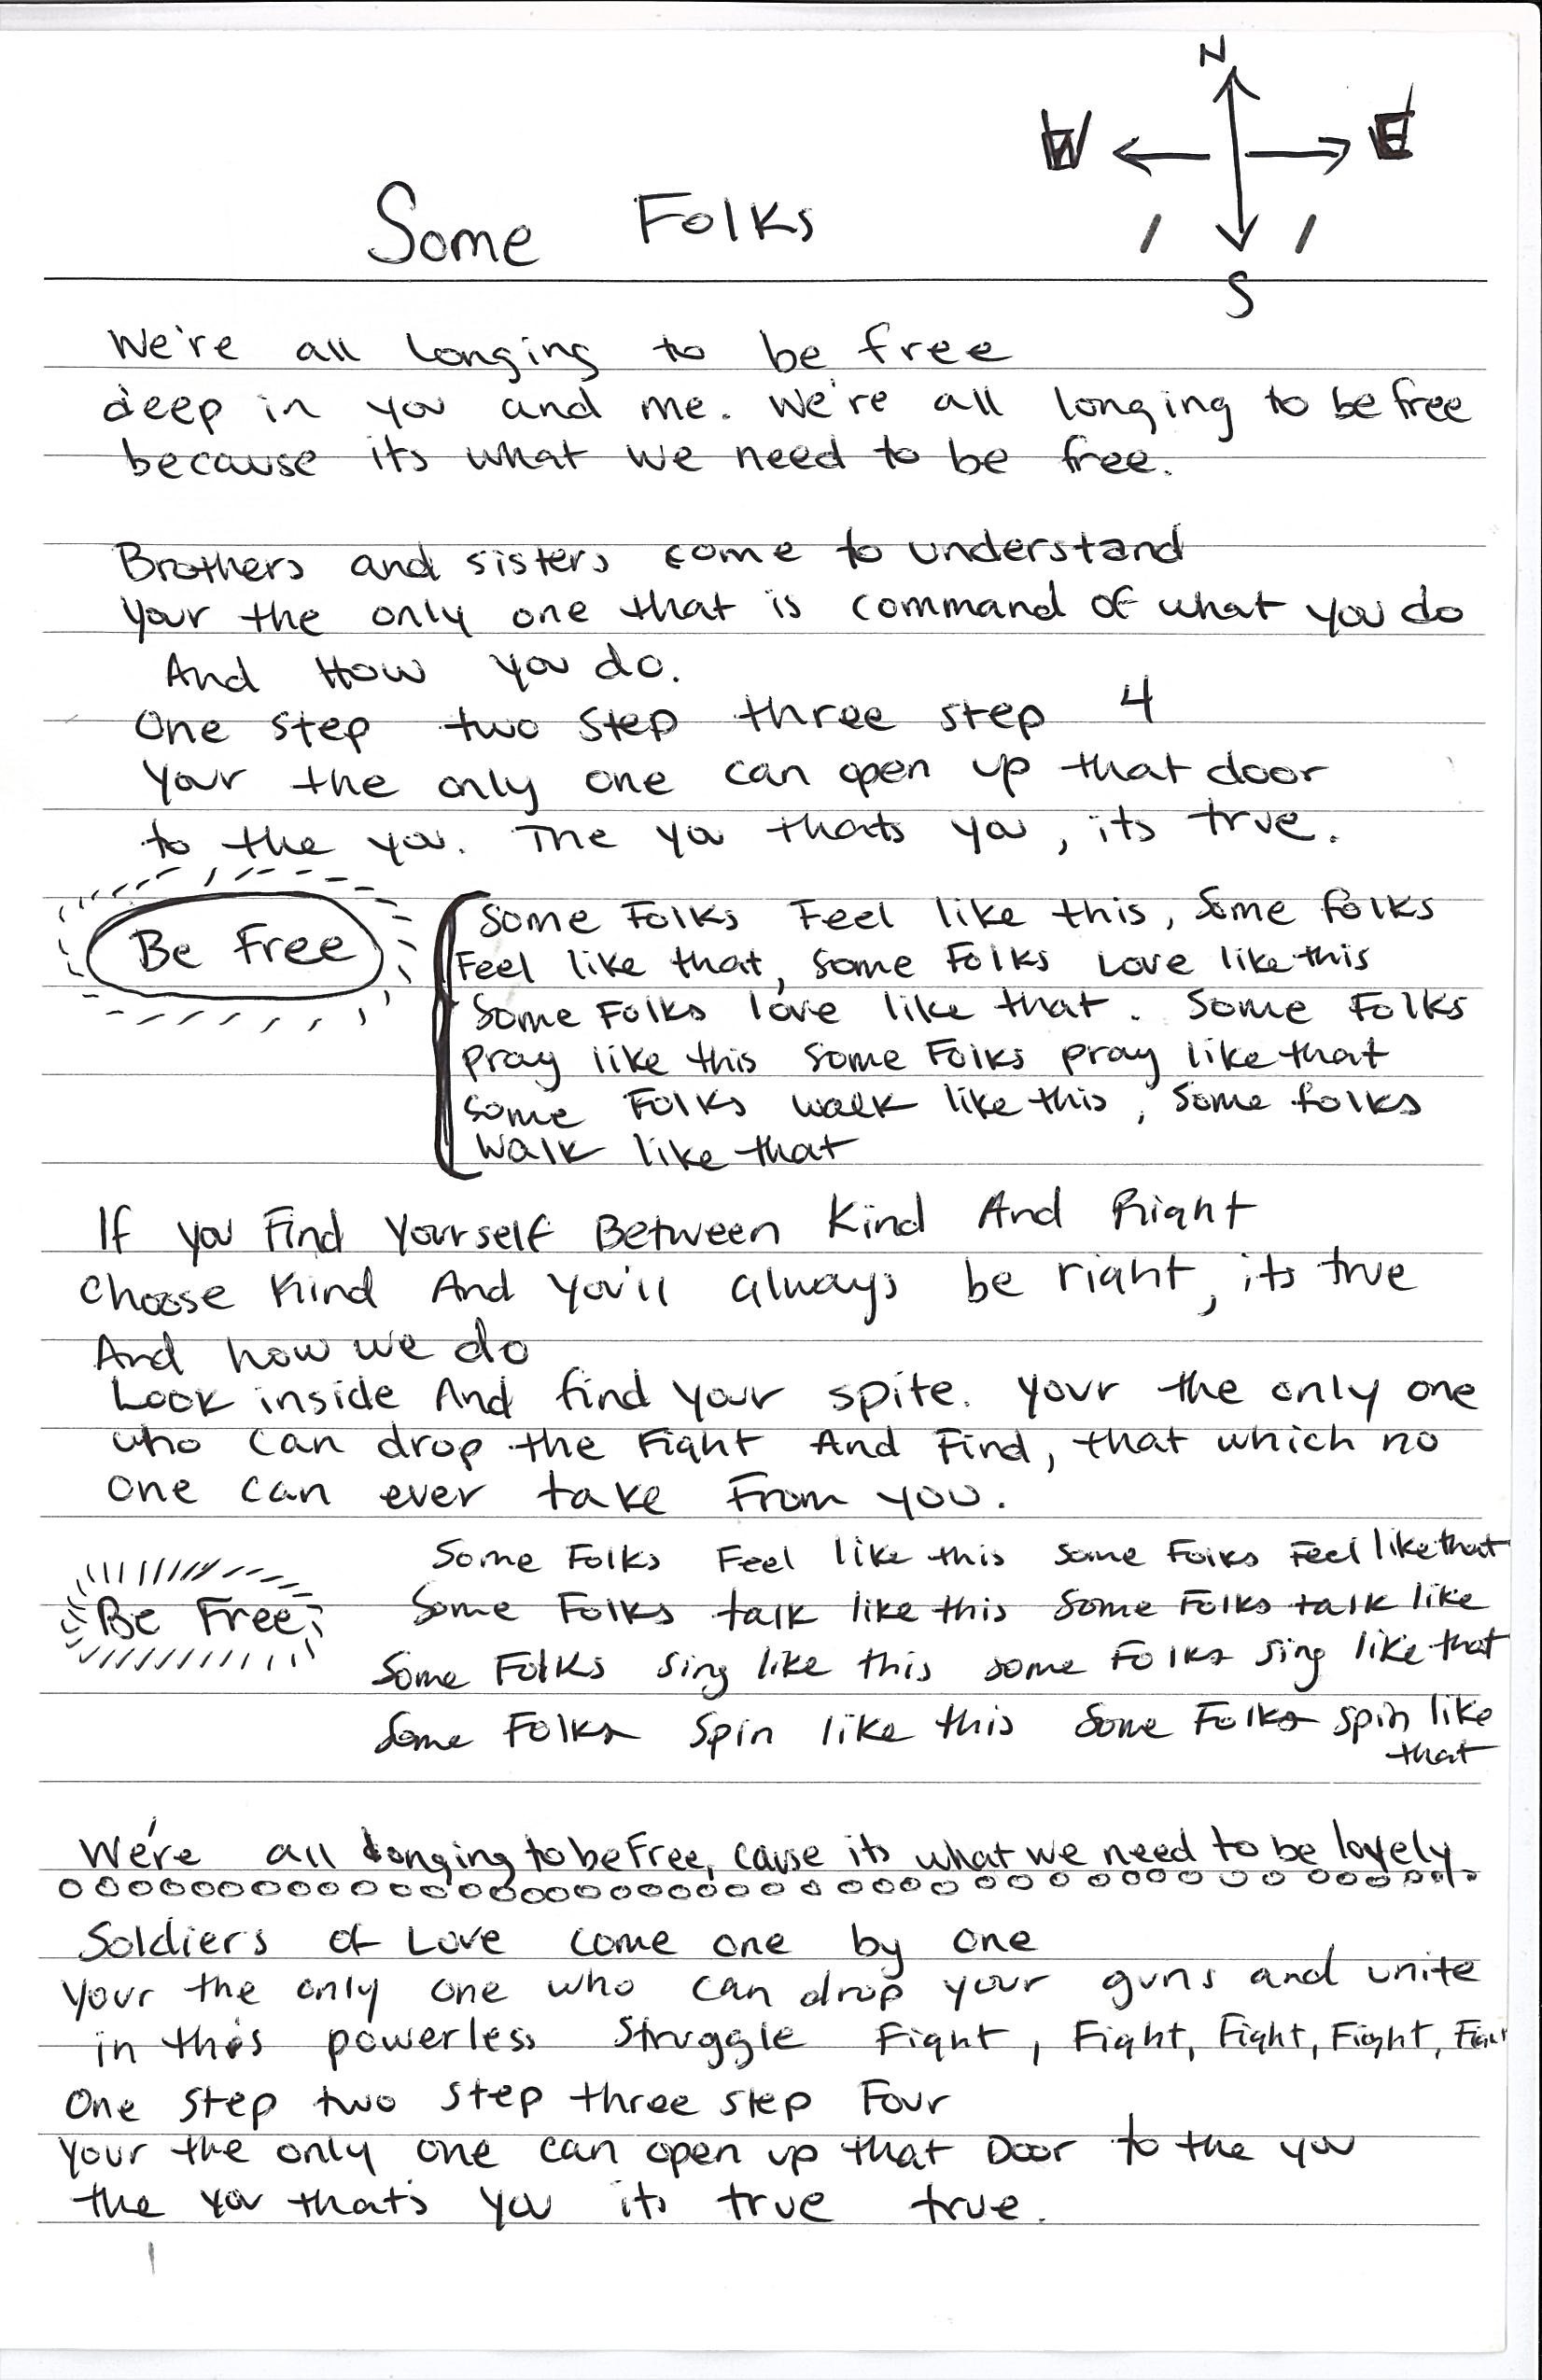 N
W E
S
Some Folks
We're all longing to be free
deep in you and me. We're all longing to be free
because its what we need to be free.
Brothers and sisters come to understand
Your the only one that is command of what you do
And How you do.
One step two step three step 4
Your the only one can open up that door
to the you. The you thats you, its true.
Be Free
Some Folks Feel like this, Some folks
Feel like that, Some Folks Love like this
Some Folks love like that. Some Folks
pray like this Some Folks pray like that
Some Folks walk like this, Some folks
walk like that
If you Find Yourself Between Kind And Right
Choose Kind And You'll always be right, its true
And how we do
Look inside And find your spite. Your the only one
who can drop the Fight And Find, that which no
one can ever take From you.
Be Free
Some Folks Feel like this Some Folks Feel like that
Some Folks talk like this Some Folks talk like
Some Folks Sing like this some Folks Sing like that
Some Folks Spin like this Some Folks spin like
that
We're all longing to be Free, cause its what we need to be lovely.
Soldiers of Love come one by one
Your the only one who can drop your guns and unite
in this powerless Struggle Fight, Fight, Fight, Fight, Fight
One Step two step three step Four
Your the only one can open up that Door to the you
the you that's you its true true.